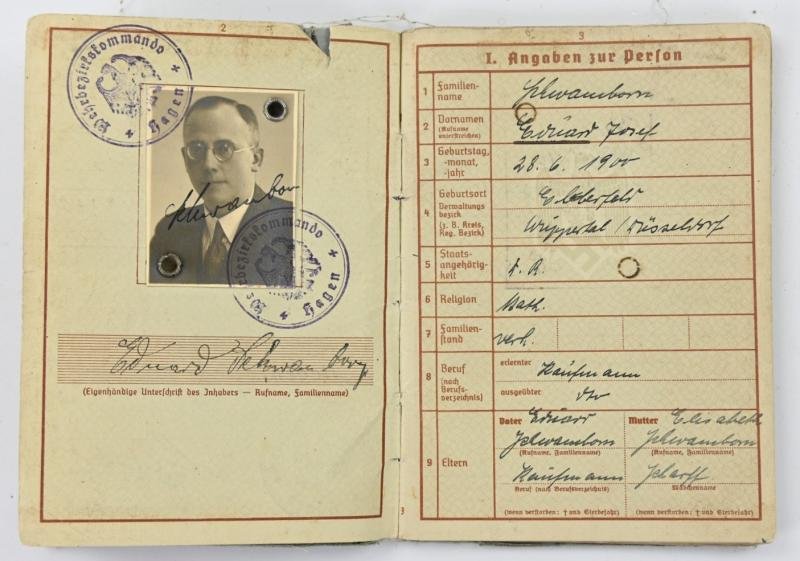 2
Wehrbezirkskommando
Hagen
Schwanborn
Wehrbezirkskommando
Hagen
Eduard Schwanborn
(Eigenhändige Unterschrift des Inhabers — Rufname, Familienname)
3
I. Angaben zur Person
1 Familien-
name
Schwanborn
2 Vornamen
(Rufname
unterstreichen)
Eduard Josef
3 Geburtstag,
-monat,
-jahr
28. 6. 1900
4 Geburtsort
Verwaltungs
bezirk
(z. B. Kreis,
Reg. Bezirk)
Elberfeld
Wuppertal / Düsseldorf
5 Staats-
angehörig-
keit
D. R.
6 Religion
Kath.
7 Familien-
stand
verh.
8 Beruf
(nach
Berufs-
verzeichnis)
erlernter
Kaufmann
ausgeübter
dto
9 Eltern
Vater Eduard
Schwanborn
(Rufname, Familienname)
Kaufmann
Beruf (nach Berufsverzeichnis)
(wenn verstorben: † und Sterbejahr)
Mutter Elisabeth
Schwanborn
(Rufname, Familienname)
Scharff
Mädchenname
(wenn verstorben: † und Sterbejahr)
3